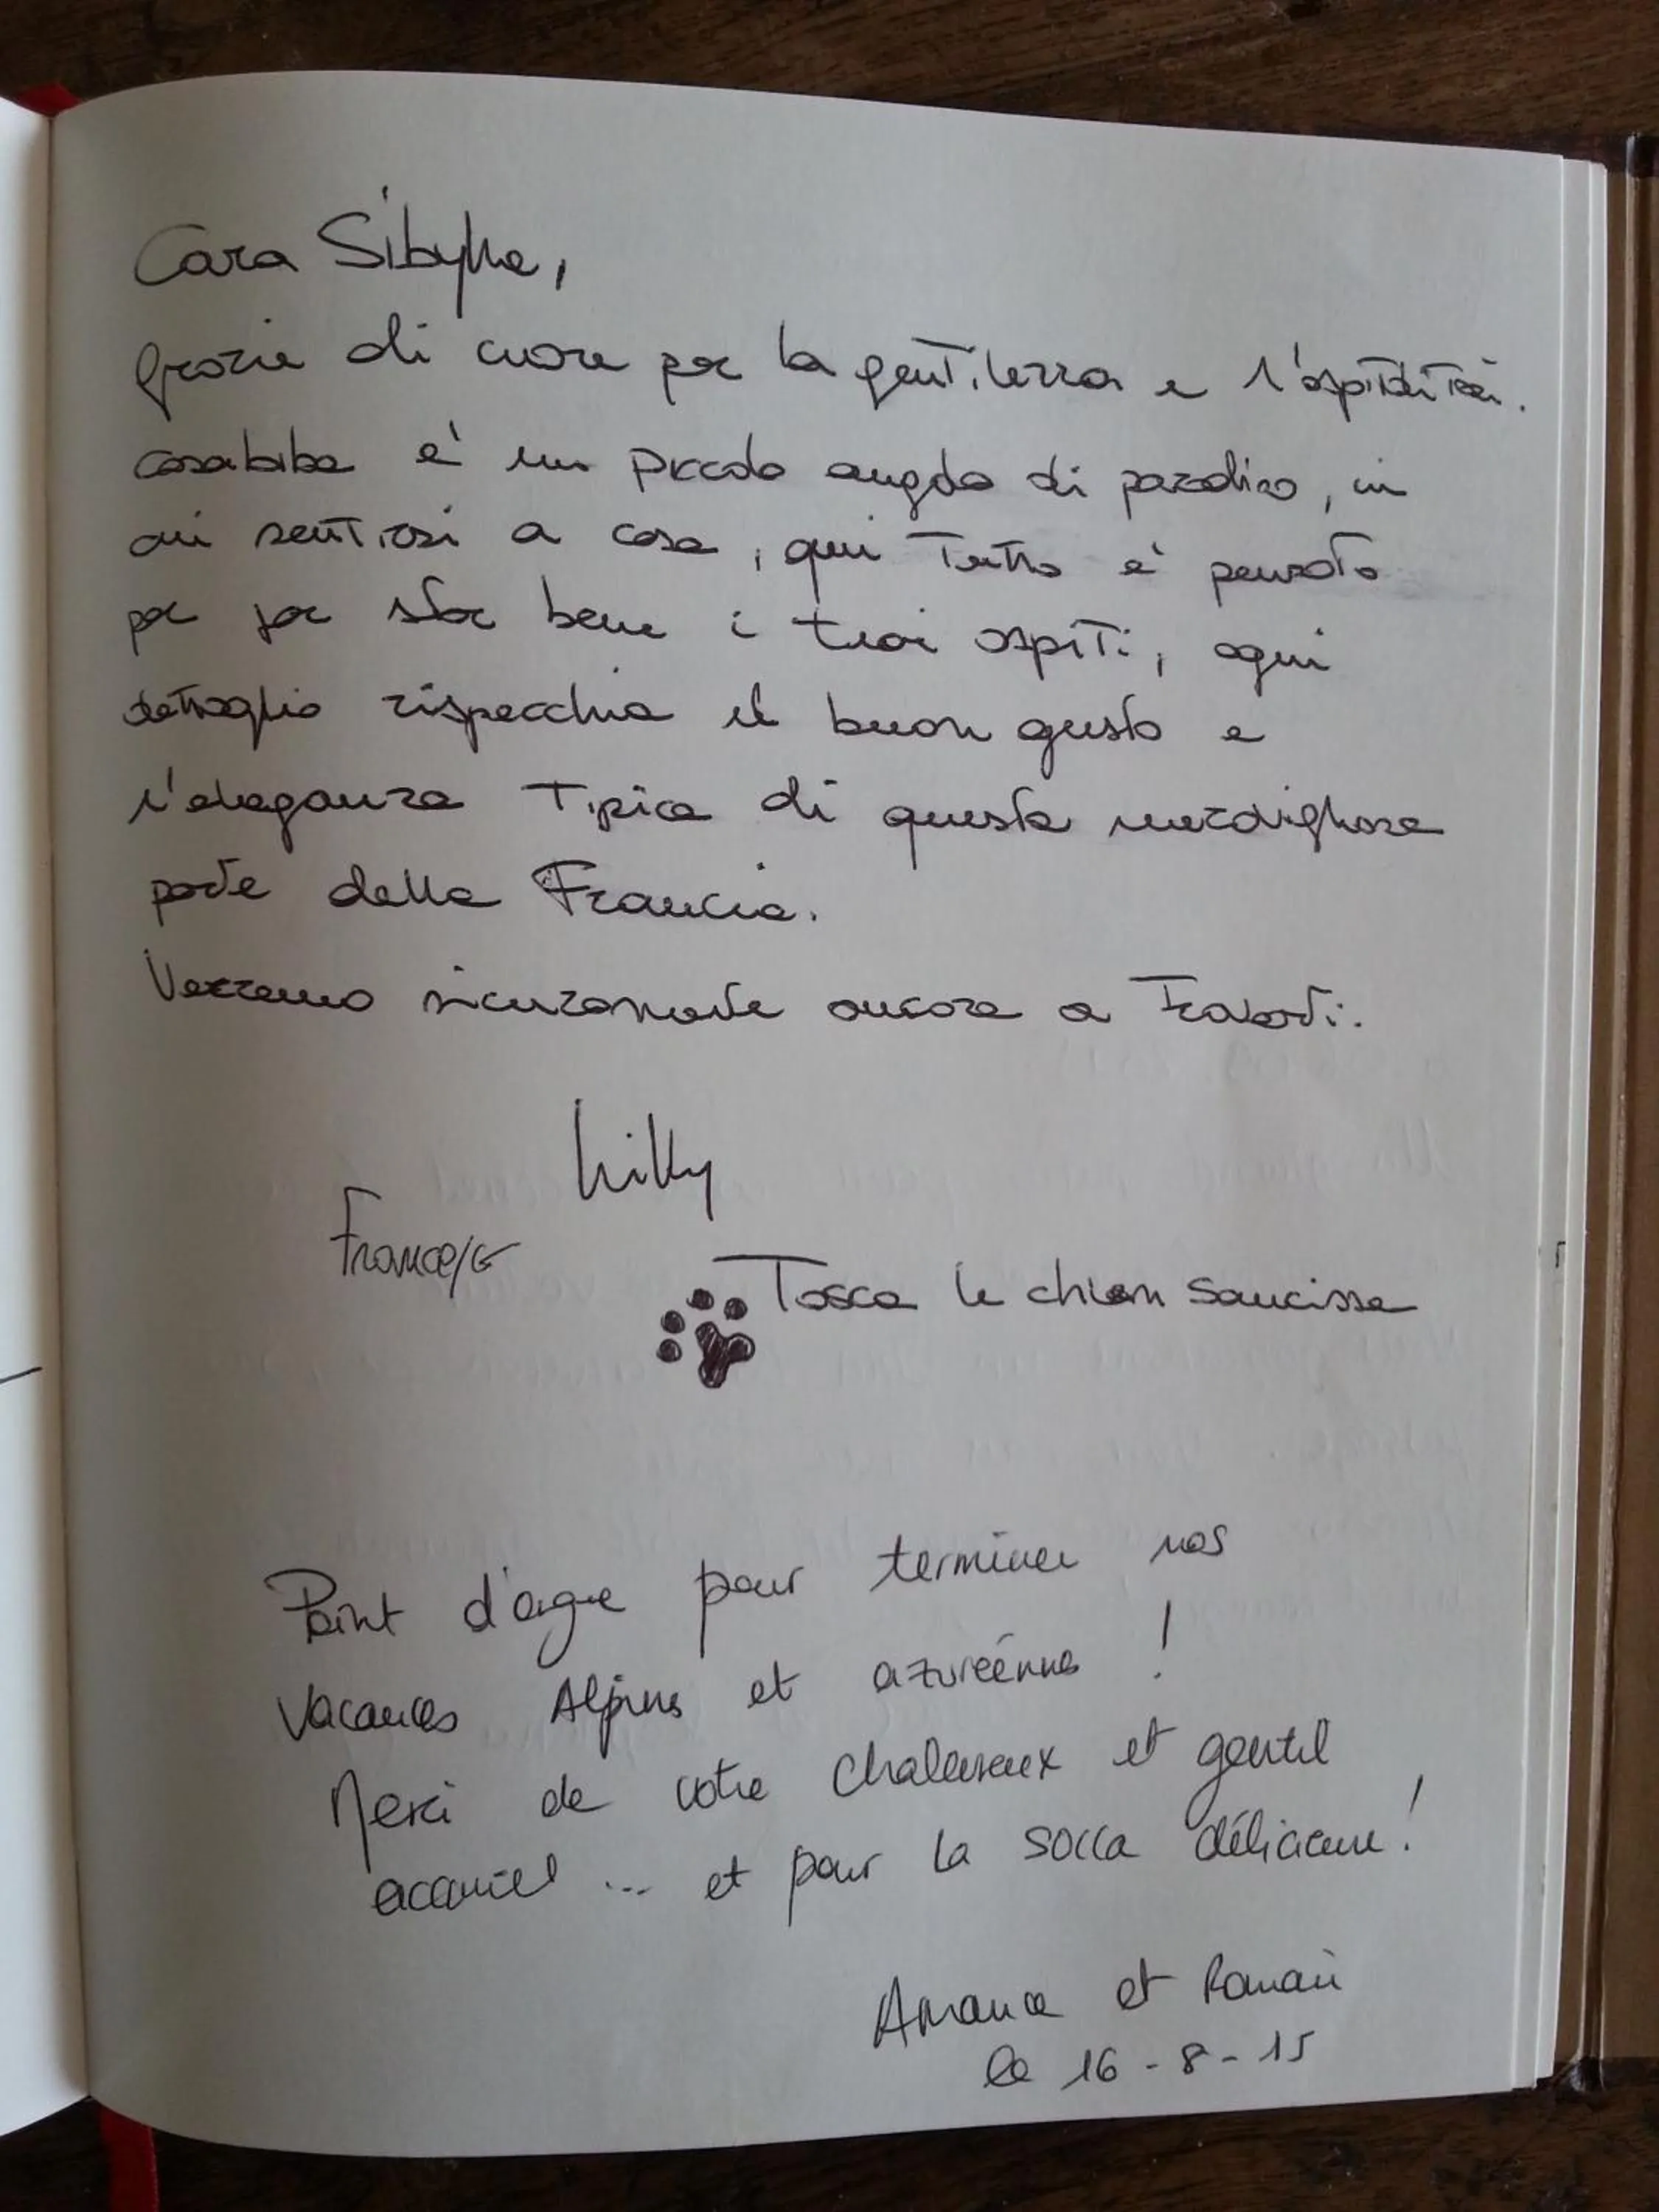 Cara Sibylle,
grazie di cuore per la gentilezza e l'ospitalità.
Casabiba è un piccolo angolo di paradiso, in
cui sentirsi a casa, qui Tutto è pensato
per far star bene i tuoi ospiti, ogni
dettaglio rispecchia il buon gusto e
l'eleganza Tipica di questa meravigliosa
parte della Francia.
Verremo sicuramente ancora a Trovarti.
Lilly
Tosca le chien saucisse
Point d'orgue pour terminer nos
vacances Alpines et azuréennes !
Merci de votre chaleureux et gentil
accueil ... et pour la socca délicieuse !
et Romain
le 16-8-15